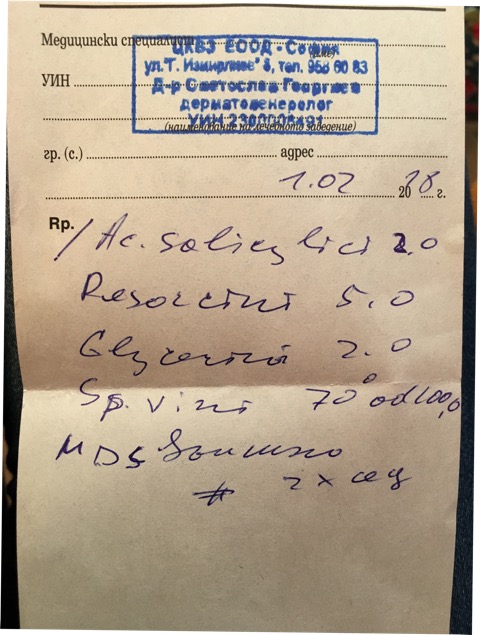 Медицински специалист
ЦКВЗ ЕООД - София
(име)
УИН
ул."Г. Измирлиев" 6, тел. 958 60 83
Д-р Светослав Георгиев
дерматовенеролог
УИН 2300003491
(наименование на лечебното заведение)
гр. (с.) адрес
1.02 2018 г.
Rp.
/ Ac. Salicylici 2.0
Resorcini 5.0
Glycerini 2.0
Sp. vini 70° ad 100,0
MDS Външно
# 2 x